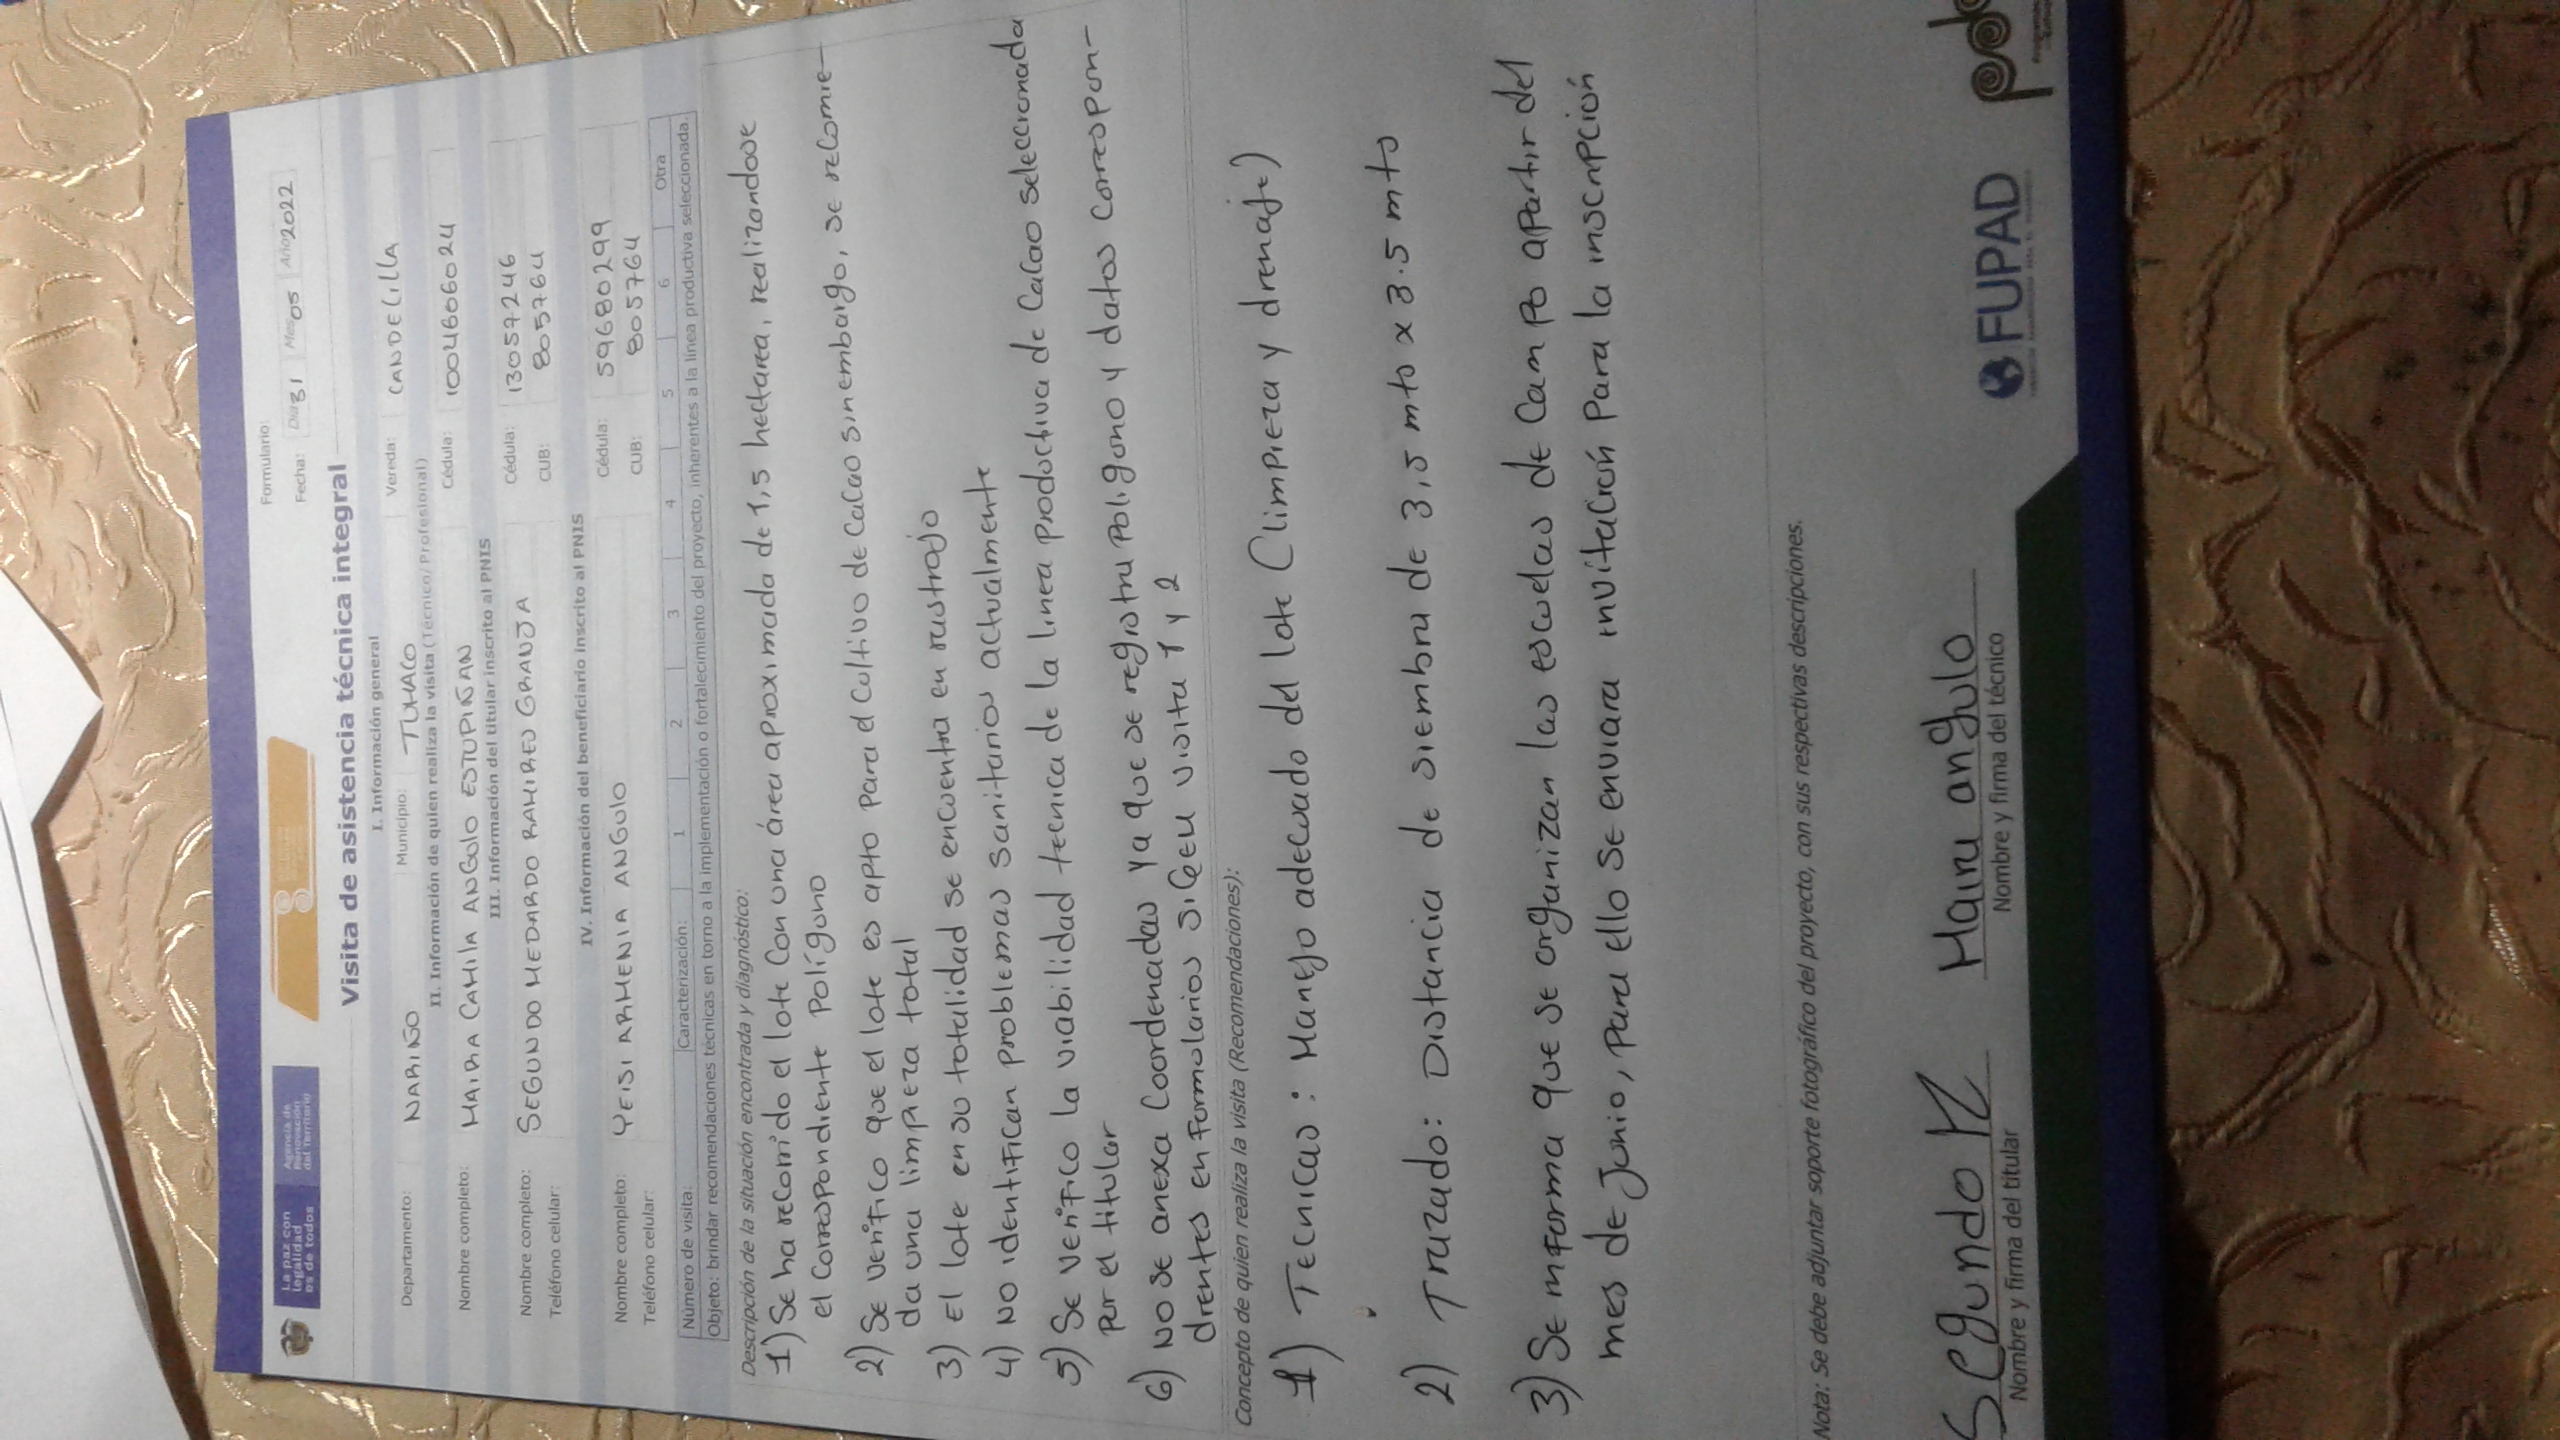 La paz con
legalidad
es de todos
Agencia de
Renovación
del Territorio
Formulario:
Fecha: Día 31 Mes 05 Año 2022
Visita de asistencia técnica integral
I. Información general
Departamento: NARIÑO Municipio: TUMACO Vereda: CANDELILLA
II. Información de quien realiza la visita (Técnico/Profesional)
Nombre completo: MAIRA CAMILA ANGULO ESTUPIÑAN Cédula: 1004606024
III. Información del titular inscrito al PNIS
Nombre completo: SEGUNDO MEDARDO RAMIRES GRANJA Cédula: 13057246
Teléfono celular: CUB: 805764
IV. Información del beneficiario inscrito al PNIS
Nombre completo: YEISI ARMENIA ANGULO Cédula: 59680299
Teléfono celular: CUB: 805764
Número de visita: Caracterización: 1 2 3 4 5 6 Otra
Objeto: brindar recomendaciones técnicas en torno a la implementación o fortalecimiento del proyecto, inherentes a la línea productiva seleccionada.
Descripción de la situación encontrada y diagnóstico:
1) Se ha recorrido el lote con una área aproximada de 1,5 hectarea, realizandose
el correspondiente Polígono
2) Se verifico que el lote es apto para el cultivo de cacao sin embargo, se recomie-
da una limpieza total
3) El lote en su totalidad se encuentra en rastrojo
4) NO identifican problemas sanitarios actualmente
5) Se verifico la viabilidad tecnica de la linea productiva de cacao seleccionada
por el titular
6) NO se anexa coordenadas ya que se registra poligono y datos correspon-
drentes en formularios siGEU visita 1 y 2
Concepto de quien realiza la visita (Recomendaciones):
1) Tecnicas: Manejo adecuado del lote (limpieza y drenaje)
2) Trazado: Distancia de siembra de 3,5 mts x 3.5 mts
3) Se informa que se organizan las escuelas de campo apartir del
mes de junio, para ello se enviara invitación para la inscripción
Nota: Se debe adjuntar soporte fotográfico del proyecto, con sus respectivas descripciones.
Segundo M
Nombre y firma del titular
Maira angulo
Nombre y firma del técnico
FUPAD